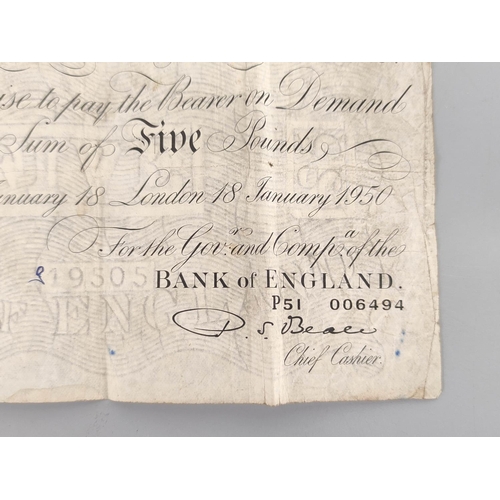 ise to pay the Bearer on Demand
Sum of Five Pounds
anuary 18 London 18 January 1950
For the Govr. and Compa. of the
BANK of ENGLAND.
P51 006494
P. S. Beale
Chief Cashier.
19505
F ENGL